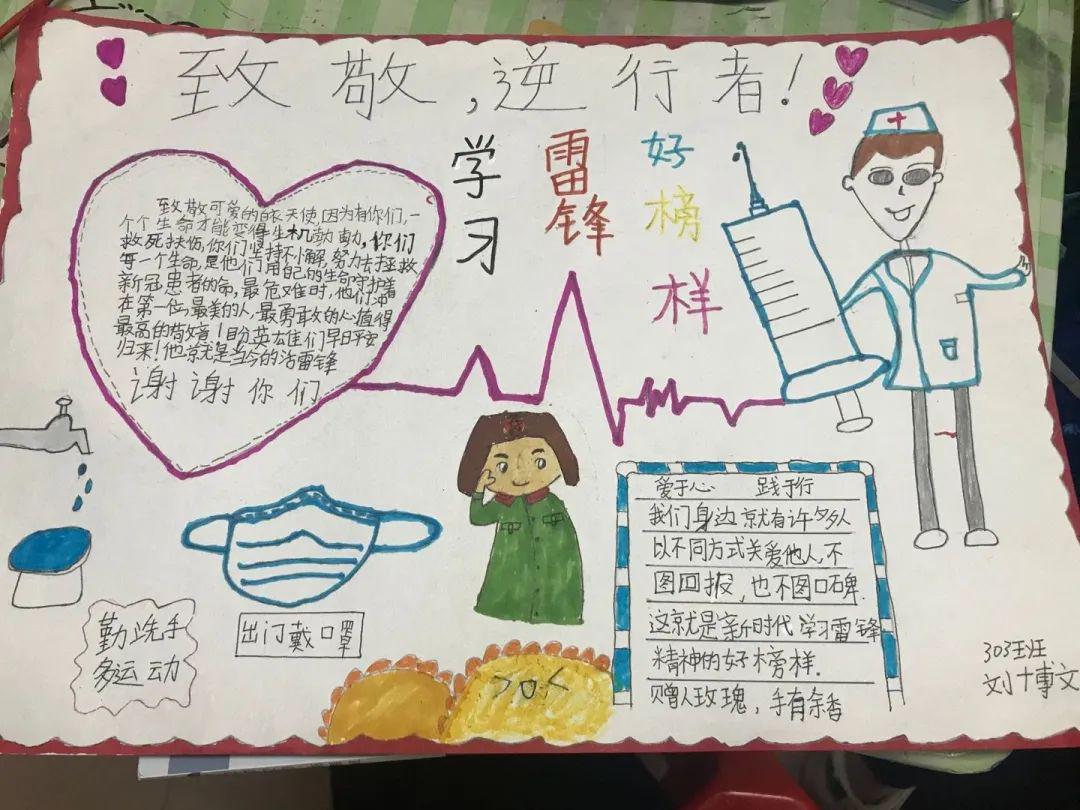 致敬,逆行者!
学习
雷锋
好榜样
致敬可爱的白衣天使,因为有你们,一
个个生命才能变得生机勃勃,你们
救死扶伤,你们坚持不懈,努力去拯救
每一个生命,是他们用自己的生命守护着
新冠患者的命,最危难时,他们冲
在第一位,最美的人,最勇敢的心值得
最高的敬意!盼英雄们早日平安
归来!他就是当今的活雷锋
谢谢你们
爱于心 践于行
我们身边就有许多人
以不同方式关爱他人,不
图回报,也不图口碑.
这就是新时代学习雷锋
精神的好榜样.
赠人玫瑰,手有余香
勤洗手
多运动
出门戴口罩
303班
刘博文